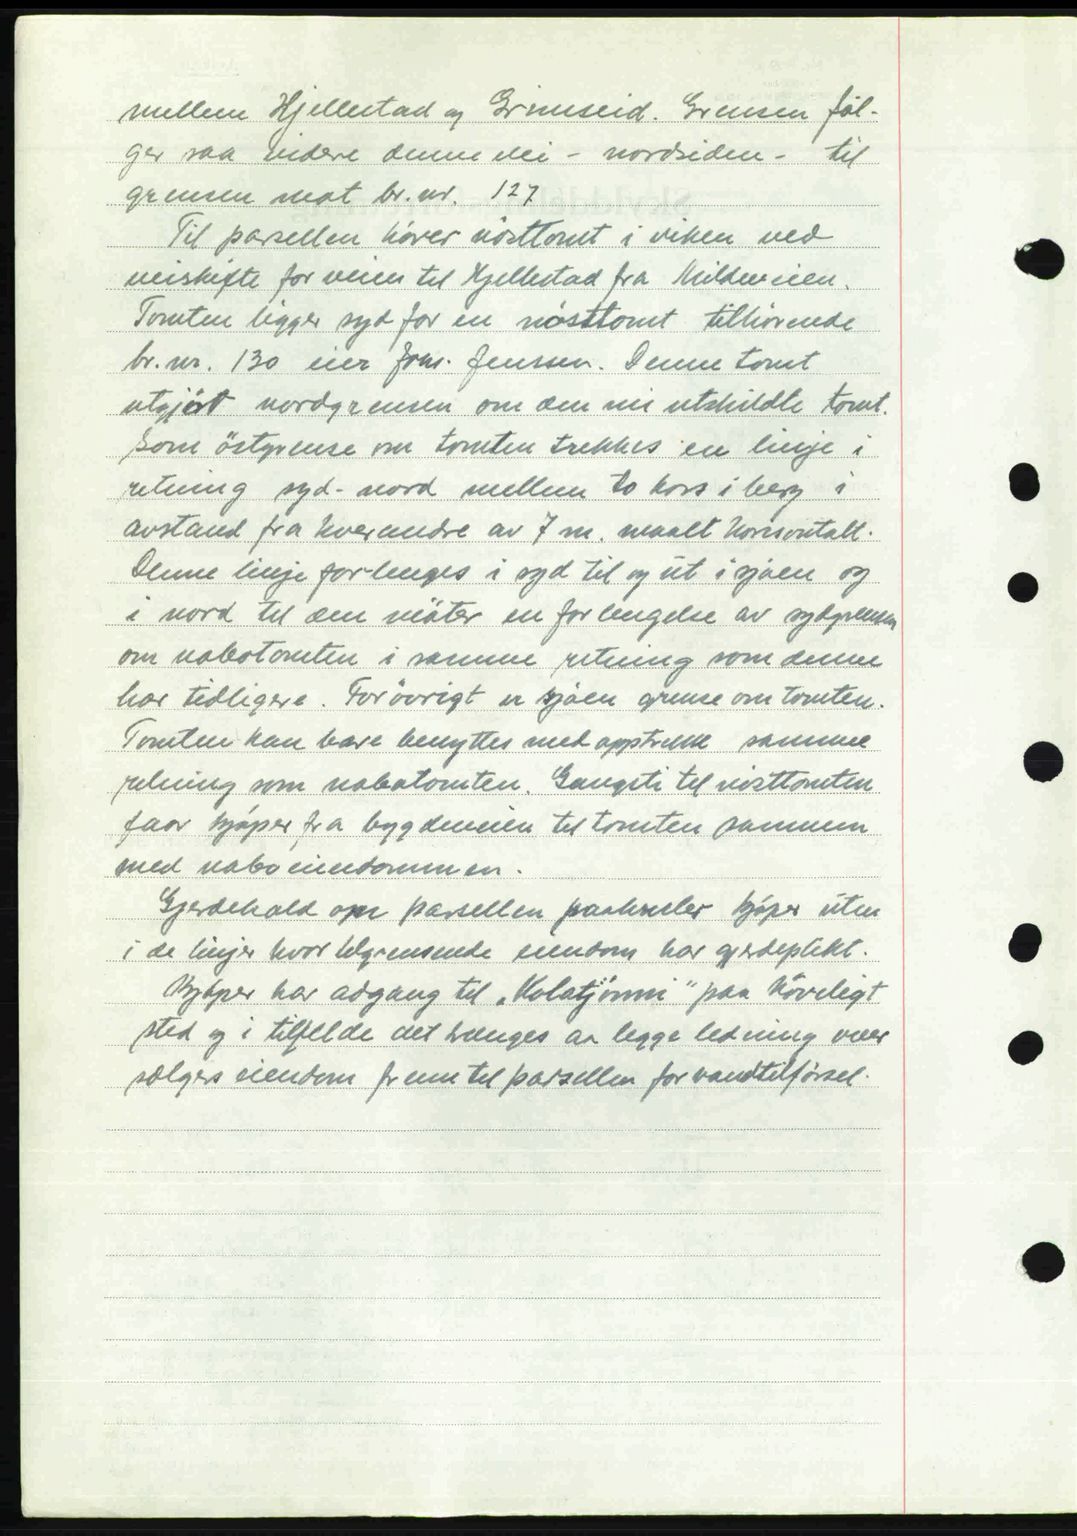 mellem Hjellestad og Grimseid. Grensen föl-
ger saa videre denne vei - nordsiden - til
grensen mot br.nr. 127
Til parsellen hörer nösttomt i viken ved
veiskifte for veien til Hjellestad fra Mildeveien.
Tomten ligger syd for en nösttomt tilhörende
br.nr. 130 eier Joh. Jenssen. Denne tomt
utgjör nordgrensen om den nu utskildte tomt.
Som östgrense om tomten trekkes en linje i
retning syd-nord mellem to kors i berg i
avstand fra hverandre av 7 m. maalt horisontalt.
Denne linje forlenges i syd til og ut i sjöen og
i nord til den möter en forlengelse av sydgrensen
om nabotomten i samme retning som denne
har tidligere. Forövrigt er sjöen grense om tomten.
Tomten kan bare benyttes med opptrekk samme
retning som nabotomten. Gangsti til nösttomten
faar kjöper fra bygdeveien til tomten sammen
med naboeiendommen.
Gjerdehold om parsellen paahviler kjöper uten
i de linjer hvor tilgrensende eiendom har gjerdeplikt.
Kjöper har adgang til "Kolatjönni" paa höveligt
sted og i tilfelde det trenges at legge ledning over
sælgers eiendom frem til parsellen for vandtilförsel.